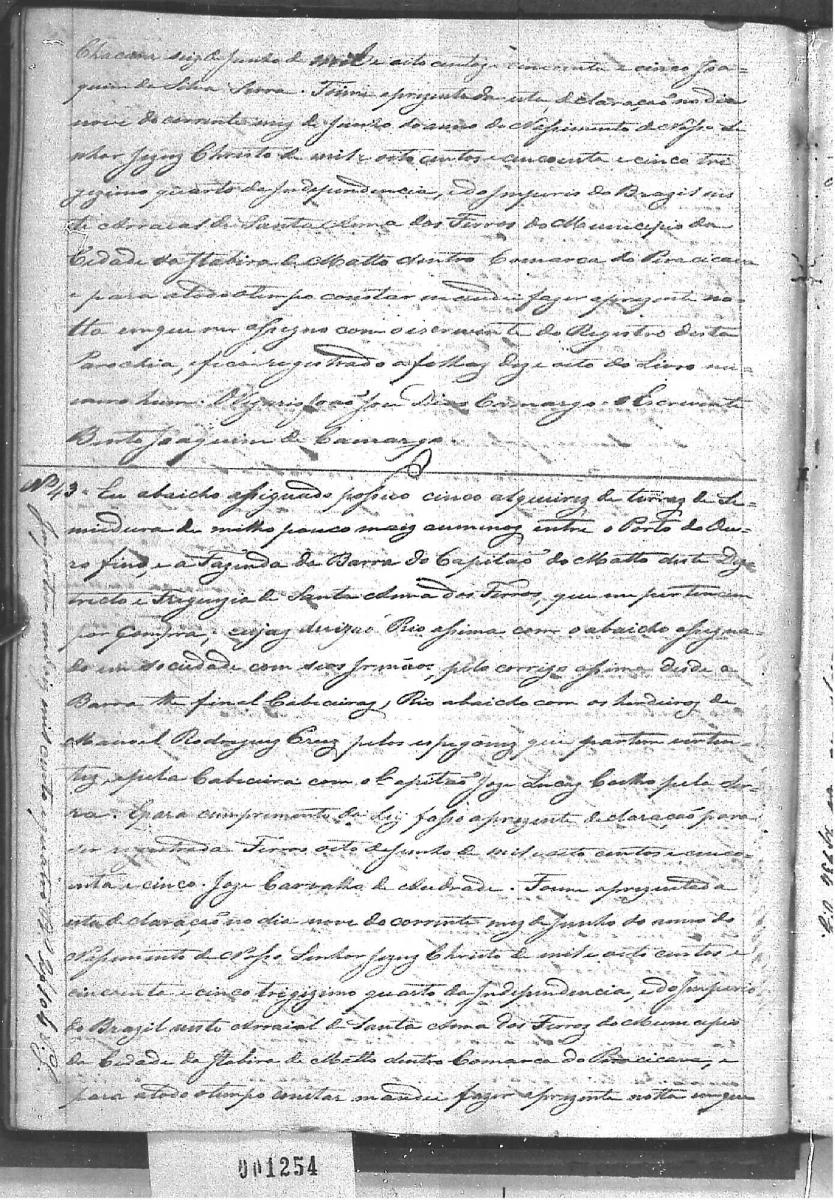 Chacara seiz de Junho de mil e oito centos e cincoenta e cinco Joa-
quim da Silva Serra. Foime aprezentada esta declaração no dia
nove do corrente mez de Junho do anno do Nassimento de Nosso Se-
nhor Jezuz Christo de mil e oito centos e cincoenta e cinco tri
gizimo quarto da Independencia, e do Imperio do Brazil nes
te Arraial de Santa Anna dos Ferros do Municipio da
Cidade da Itabira de Matto dentro Comarca do Piracicava
e para a todo otempo constar mandei fazer aprezente no-
tta emque me assigno com o iscrevente do Registro desta
Parochia, e fica registrado a folhaz dez e oito do Livro nu-
mero hum. O Vigario João Joze Dias Camargo. O Escrevente
Bento Joaquim de Camargo.
Nº 43. Eu abaicho assignado possuo cinco alqueirez de terraz de Se-
madura de milho pouco maiz ou menoz entre o Porto do Ou-
ro fino, e a Fazenda da Barra do Capitão do Matto deste Diz
trecto e Freguezia de Santa Anna dos Ferros, que me pertencem
por Compra, cujaz divizaõ Rio assima com o abaicho assigna-
do em sociedade com seos Irmãos, pelo corrigo assima desde a
Barra the final Cabiceiraz, Rio abaicho com os herdeiroz de
Manoel Rodrigues Cruz pelos espigoenz que partem verten-
tez, e pela Cabiceira com o Capitão Joze Lucaz Coelho pela Ser-
ra. E para cumprimento da Lei fasso aprezente declaração para
ser registrada Ferros oito de Junho de mil e oito centos e cinco-
enta e cinco. Joze Carvalho de Andrade. Foime aprezentada
esta declaração no dia nove do corrente mez de Junho do anno do
Nassimento de Nosso Senhor Jezuz Christo de mil e oito centos e
cincoenta e cinco trigizimo quarto da Independencia, e do Imperio
do Brazil neste Arraial de Santa Anna dos Ferroz do Municipio
da Cidade da Itabira de Matto dentro Comarca do Piracicava, e
para a todo otempo constar mandei fazer aprezente notta emque
001254